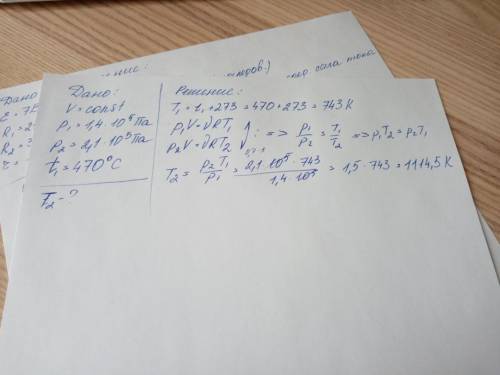 Дано:
V = const
p₁ = 1,4 · 10⁵ Па
p₂ = 2,1 · 10⁵ Па
t₁ = 470°C
T₂ - ?
Решение:
T₁ = t₁ + 273 = 470 + 273 = 743 К
p₁V = νRT₁
p₂V = νRT₂ ↑: => p₁/p₂ = T₁/T₂ => p₁T₂ = p₂T₁
T₂ = p₂T₁/p₁ = 2,1 · 10⁵ · 743/1,4 · 10⁵ = 1,5 · 743 = 1114,5 К
Дано
сила тока